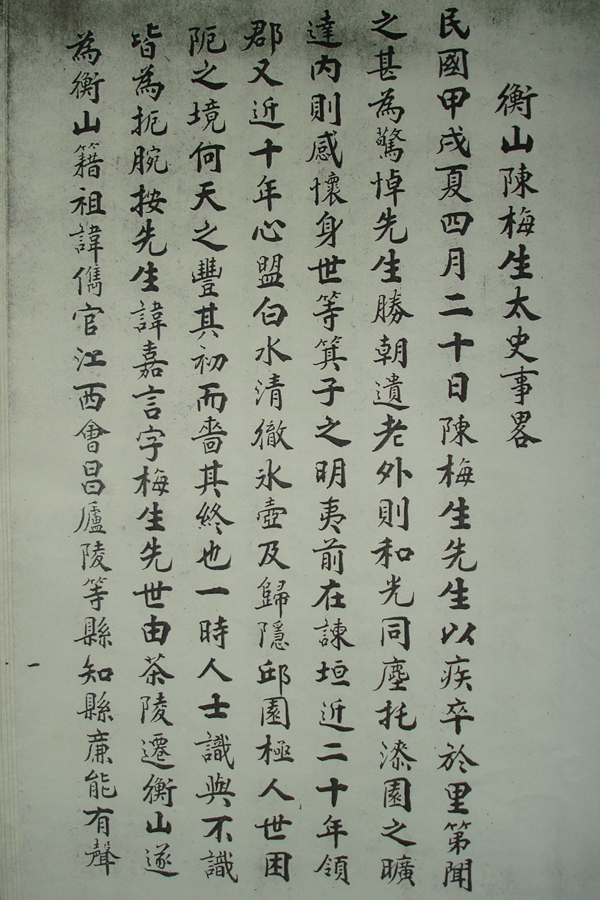 衡山陳梅生太史事畧
民國甲戌夏四月二十日陳梅生先生以疾卒於里第聞
之甚為驚悼先生勝朝遺老外則和光同塵托漆園之曠
達内則感懷身世等箕子之明夷前在諫垣近二十年領
郡又近十年心盟白水清徹冰壺及歸隱邱園極人世困
阨之境何天之豐其初而嗇其終也一時人士識與不識
皆為扼腕按先生諱嘉言字梅生先世由茶陵遷衡山遂
為衡山籍祖諱儁官江西會昌廬陵等縣知縣廉能有聲
一